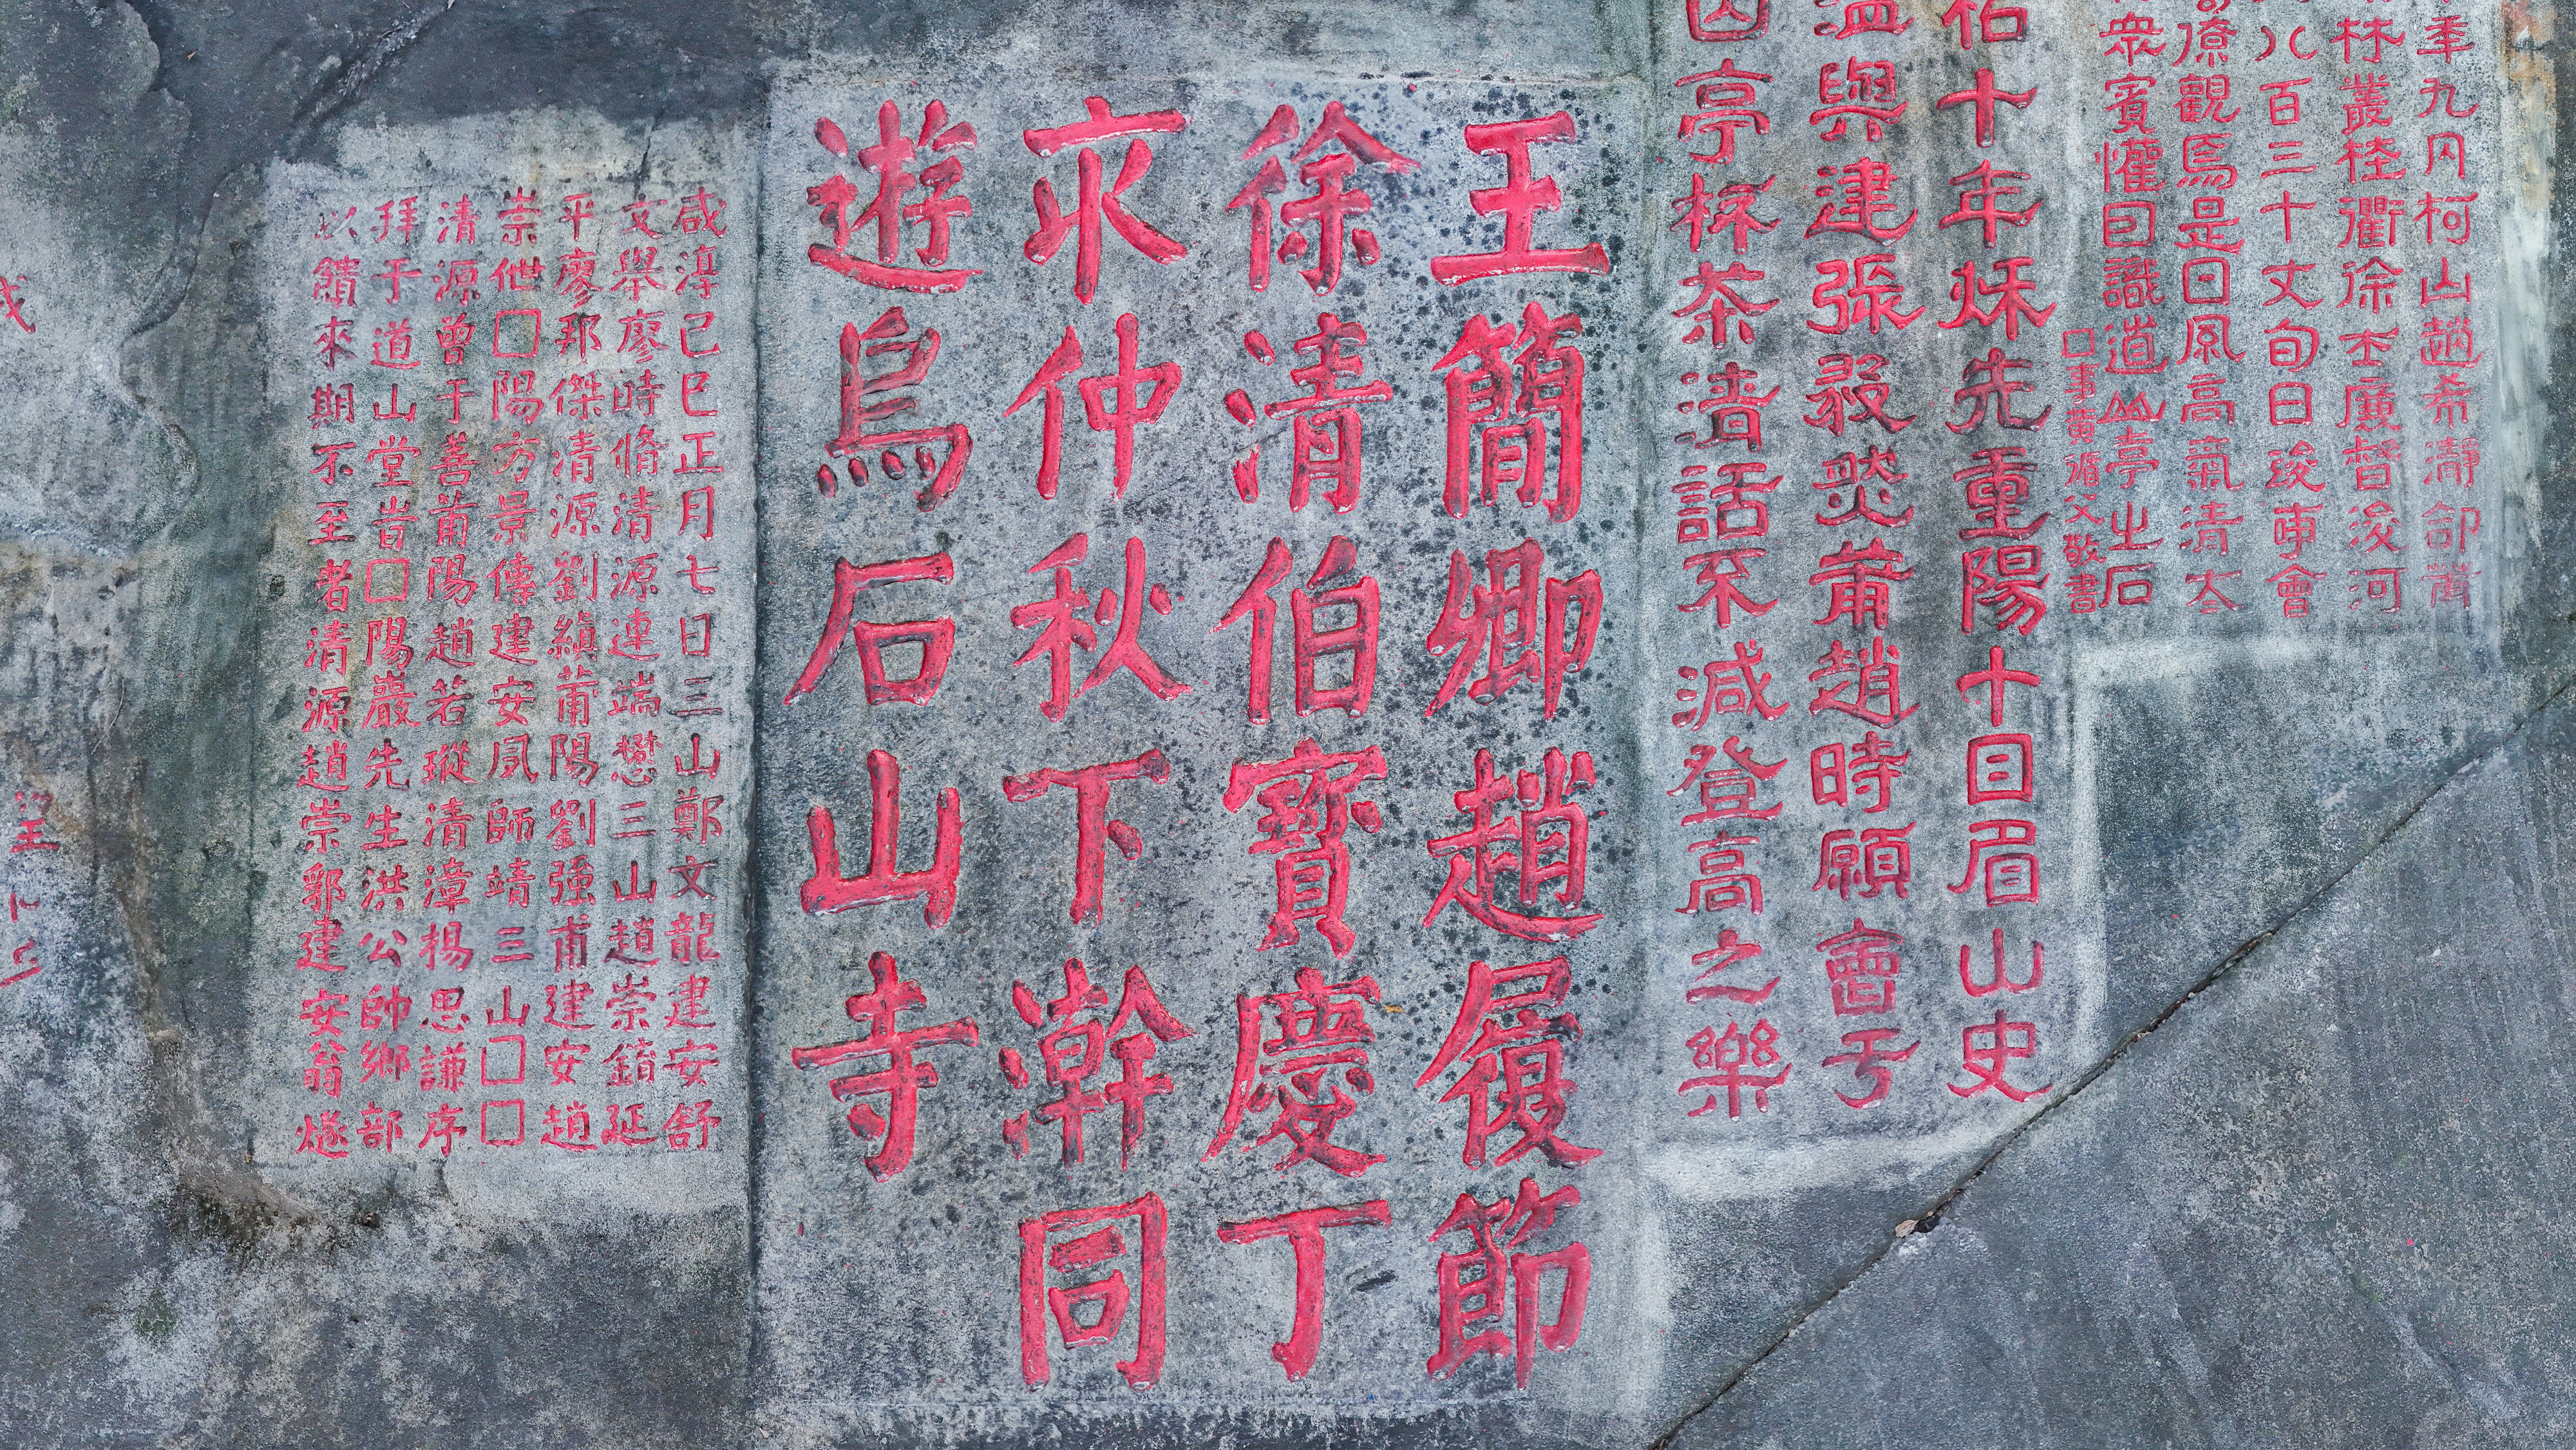 年九月柯山趙希瀞命莆
林叢桂衢徐士廉督浚河
八百三十丈旬日竣事會
僚觀焉是日風高氣清太
眾賓懽曰識道山亭之石
□事黃循父敬書
祐十年秌先重陽十日眉山史
溫與建張叕焱莆趙時願會于
亭杯茶清話不減登高之樂
王簡卿趙履節
徐清伯寶慶丁
亥仲秋下澣同
遊烏石山寺
咸淳己巳正月七日三山鄭文龍建安舒
文舉廖時脩清源連端懋三山趙崇錥延
平廖邦傑清源劉縝莆陽劉強甫建安趙
崇𠈁□陽方景傳建安夙師靖三山□□
清源曾于善莆陽趙若瑽清漳揚思謙序
拜于道山堂旹□陽巖先生洪公帥鄉部
以饋來期不至者清源趙崇郛建安翁燧